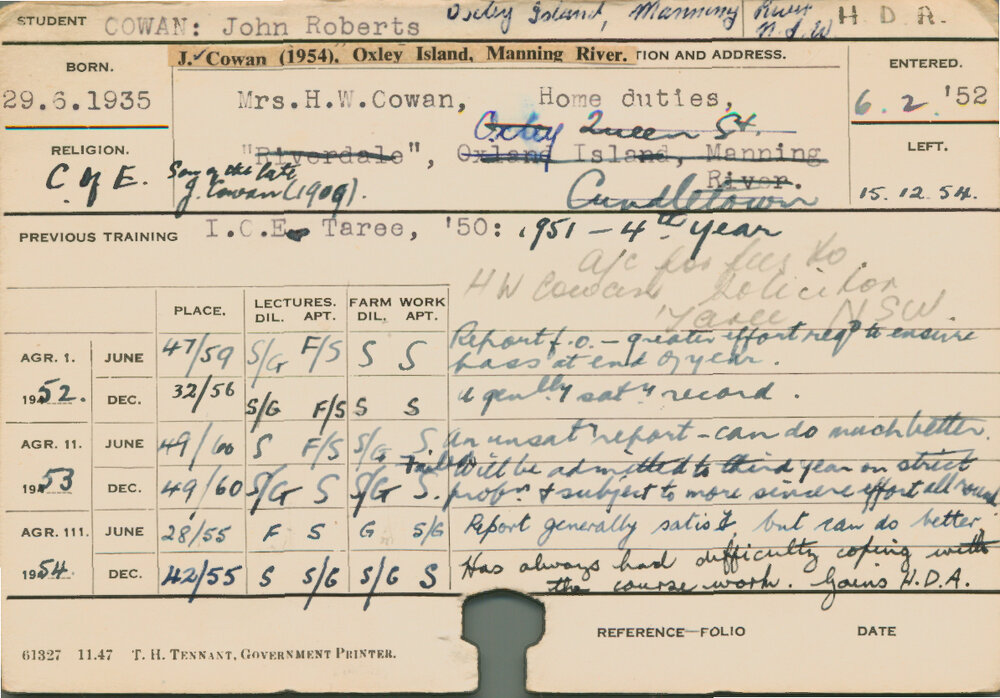 STUDENT COWAN: John Roberts Oxley Island, Manning River N.S.W H. D. A.
J. Cowan (1954), Oxley Island, Manning River. TION AND ADDRESS.
BORN. ENTERED.
29.6.1935 Mrs.H.W.Cowan, Home duties, 6. 2. '52
Oxley Queen St.
RELIGION. "Riverdale", Oxland Island, Manning River. LEFT.
C of E. Son of the late J. Cowan (1909). Cundletown 15. 12. 54.
PREVIOUS TRAINING I.C.E. Taree, '50: 1951 - 4th year
a/c for fees to
H W Cowan, Solicitor
Taree NSW
PLACE. LECTURES. DIL. APT. FARM WORK DIL. APT.
AGR. 1. JUNE 47/59 S/G F/S S S Report f.o. - greater effort reqd to ensure
pass at end of year.
1952. DEC. 32/56 S/G F/S S S A genlly saty record.
AGR. 11. JUNE 49/60 S F/S S/G S An unsaty report - can do much better.
Failed Will be admitted to third year on strict
1953 DEC. 49/60 S/G S S/G S. probn & subject to more sincere effort all round
AGR. 111. JUNE 28/55 F S G S/G Report generally satisf, but can do better.
1954. DEC. 42/55 S S/G S/G S Has always had difficulty coping with
the course work. Gains H.D.A.
REFERENCE—FOLIO DATE
61327 11.47 T. H. TENNANT, GOVERNMENT PRINTER.